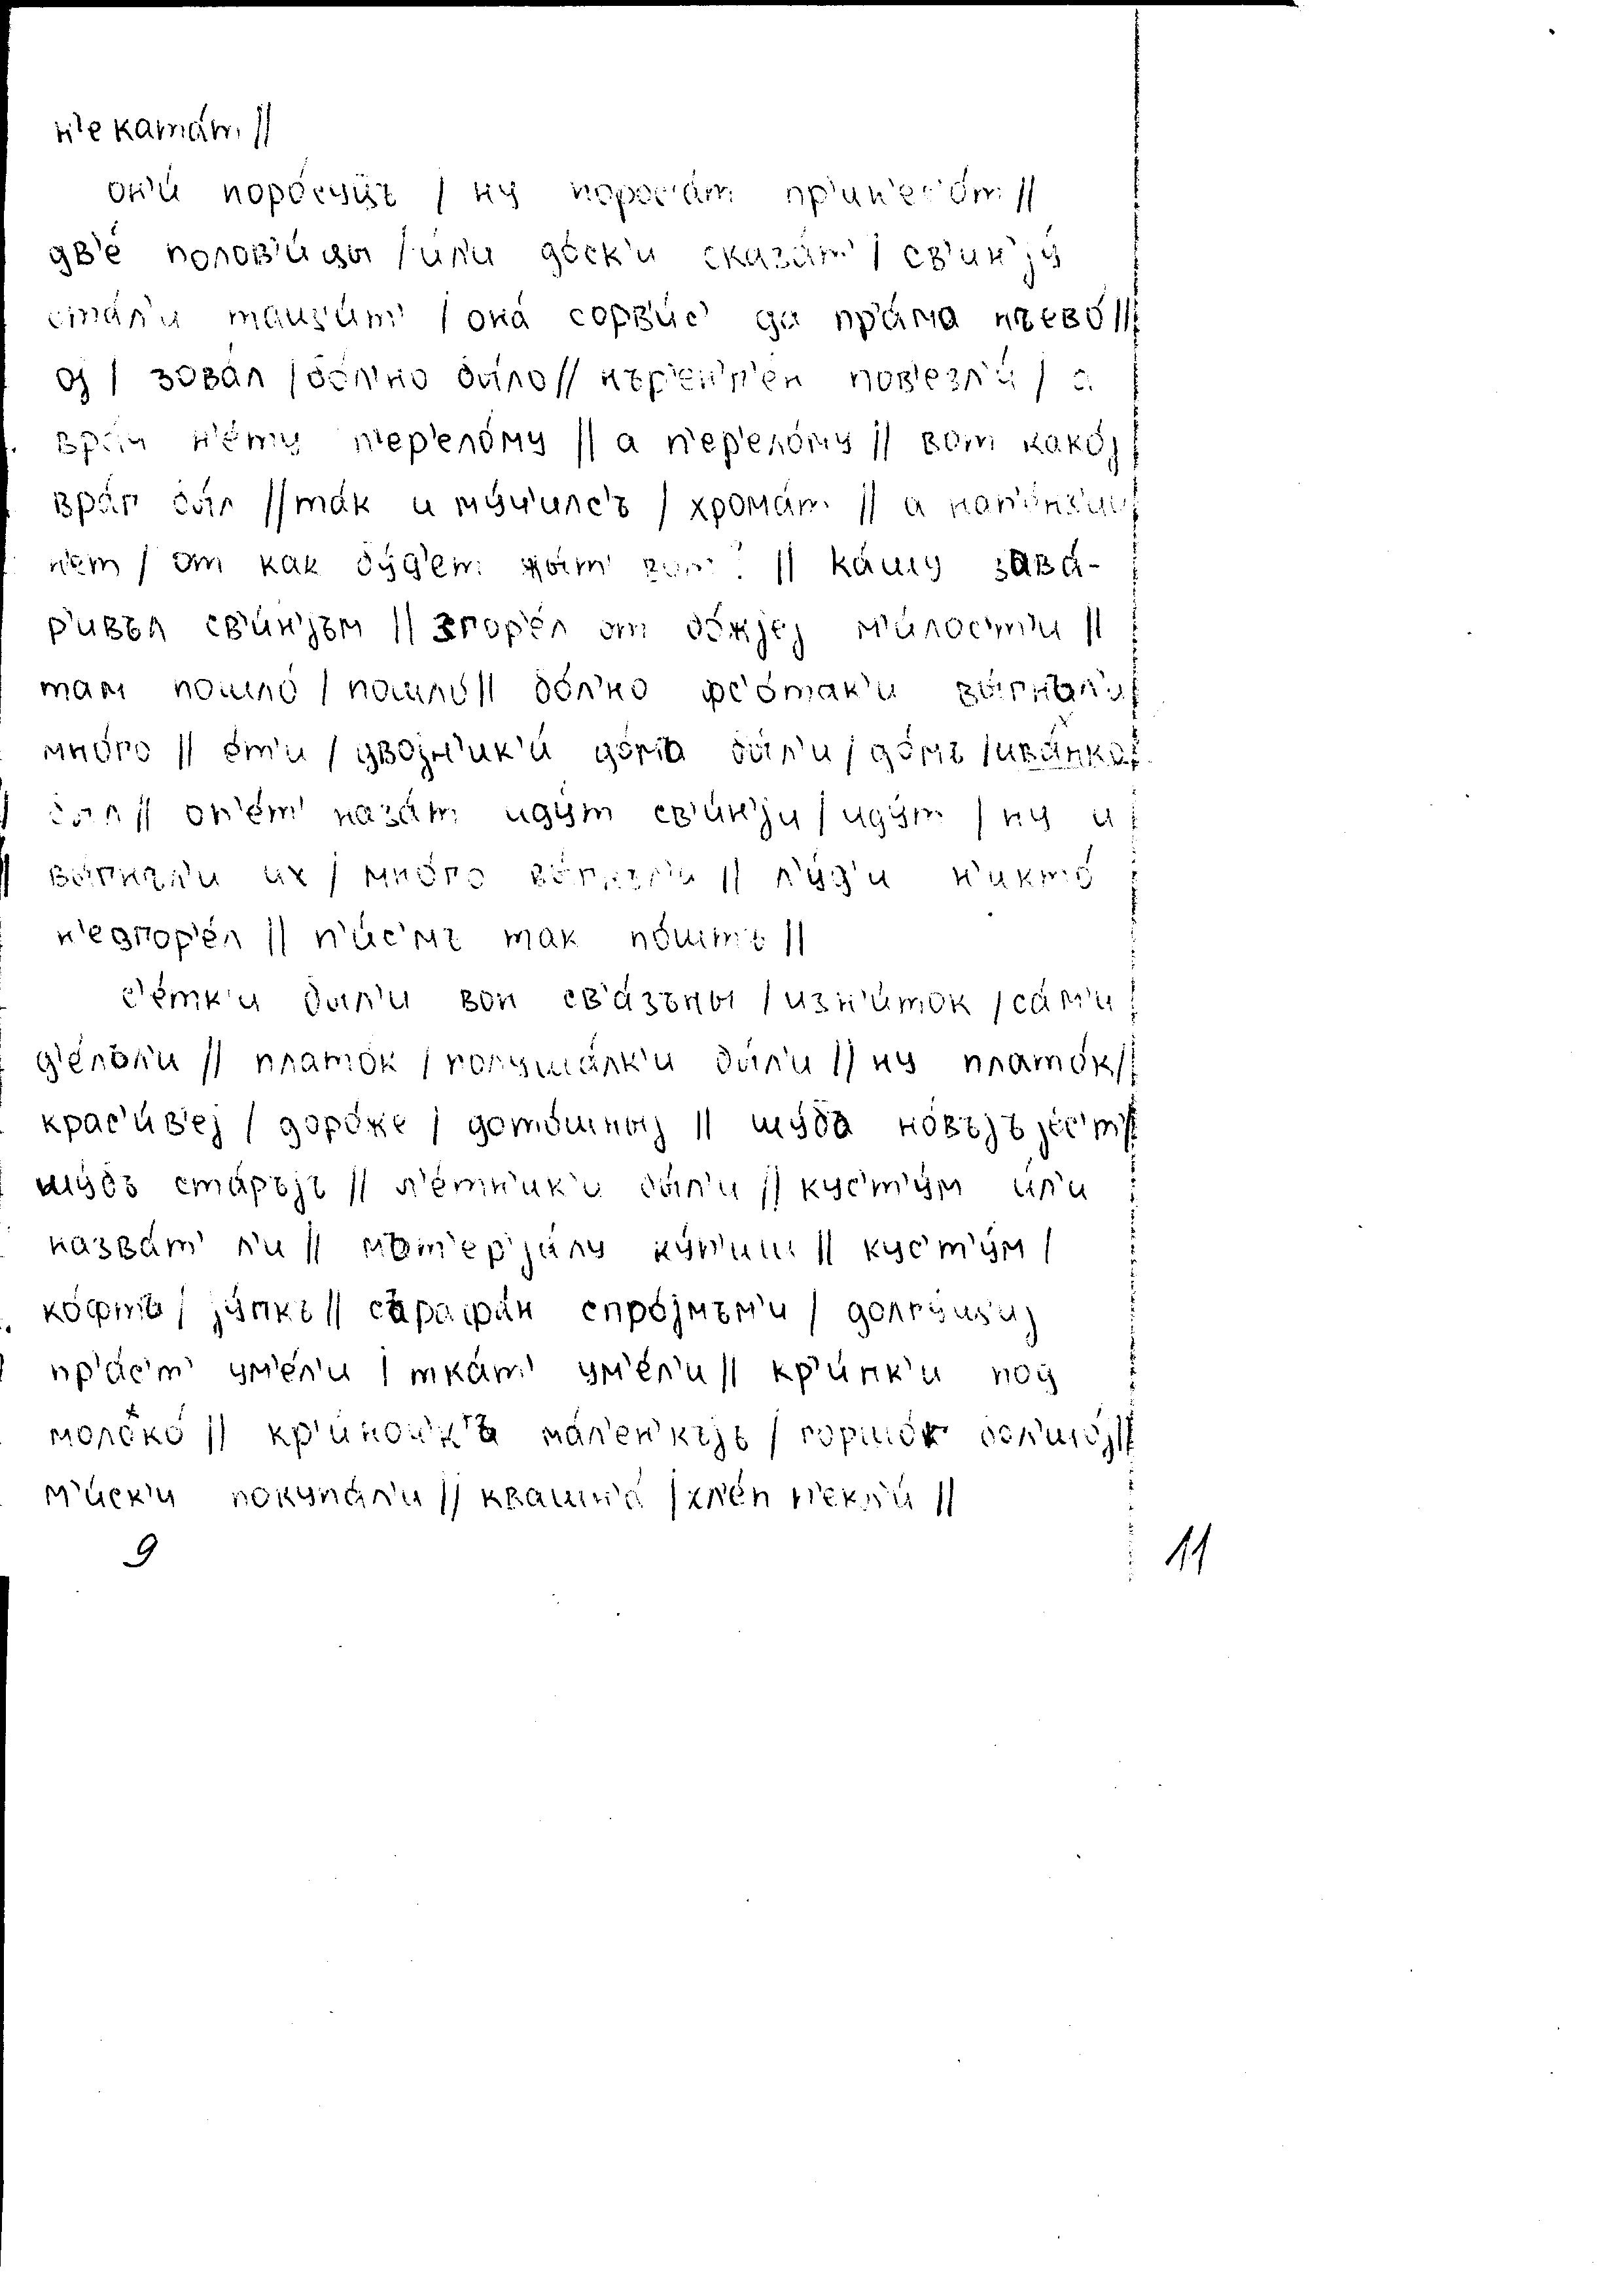 н'е катáт ||
он'и́ поро́суцъ / ну порос'áт пр'ин'ес'óт ||
дв'é полов'и́цы / и́л'и до́ск'и сказáт' / св'ин'jу́
стáл'и тащ'и́т' / онá сорв'и́с' да пр'áма нъевó ||
оj / зовáл / бóл'но бы́ло || нъ пов'езл'и́ / а
врáч н'éту п'ер'елóму || а п'ер'елóму || вот какój
врáг был || тáк и му́ч'илс'ъ / хромáт || а
н'ет / от как бу́д'ет жыт' вот? || кáшу завá-
р'ивъл св'и́н'jъм || згор'éл от бóжjеj м'и́лос'т'и ||
там пошлó / пошлó || бóл'но фс'óтак'и вы́гнъл'и
мнóго || éт'и / двоjн'ик'и́ дóма бы́л'и / дóмъ / ивáнко
был || оп'éт' назáт иду́т св'и́н'jи / иду́т / ну и
вы́гнъл'и их / мнóго вы́гнъл'и || л'у́д'и н'иктó
н'езгор'éл || п'и́с'мъ так пóштъ ||
с'éтк'и был'и вон св'áзъны / изн'и́ток / сáм'и
д'éлъл'и || платóк / полушáлк'и бы́л'и || ну платóк ||
крас'и́в'еj / дорóже / дотóшныj || шу́ба нóвъjъ jéс'т' ||
шу́бъ стáръjъ || л'éтн'ик'и бы́л'и || кус'т'у́м и́л'и
назвáт' л'и || мът'ер'jáлу ку́п'иш || кус'т'у́м /
кóфтъ / jу́пкъ || сърафáн спрójмъм'и / долгу́щ'иj
пр'áс'т' ум'éл'и / ткáт' ум'éл'и || кр'и́нк'и под
молокó || кр'и́ноч'к'ъ мáл'ен'къjъ / горшóк бол'шój ||
м'и́ск'и покупáл'и || квашн'á / хл'éп п'екл'и́ ||
9 11